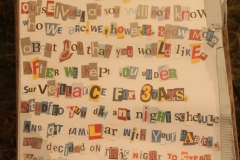 OURSELVES SO YOU will NOT know
who WE ARE. we however know MORE
about you than you would LIKE.
AFTER WE kept YOU UNDER
SurVEILLANCE FOR 3 DAYS
studied your day an night schedule
And got FAMILIAR with YOUR
WE decided on THIS NIGHT TO STEAL